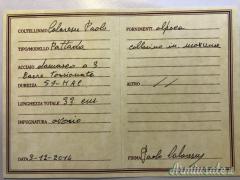 COLTELLINAIO Calaresu Paolo
TIPO/MODELLO Pattada
ACCIAIO damasco a 3
barre torsionate
DUREZZA 57-HRC
LUNGHEZZA TOTALE 33 cm
IMPUGNATURA
DATA 9-12-2014
FORNIMENTI alpaca
collarino in
ALTRO //
FIRMA Paolo Calaresu
Armiusate.it